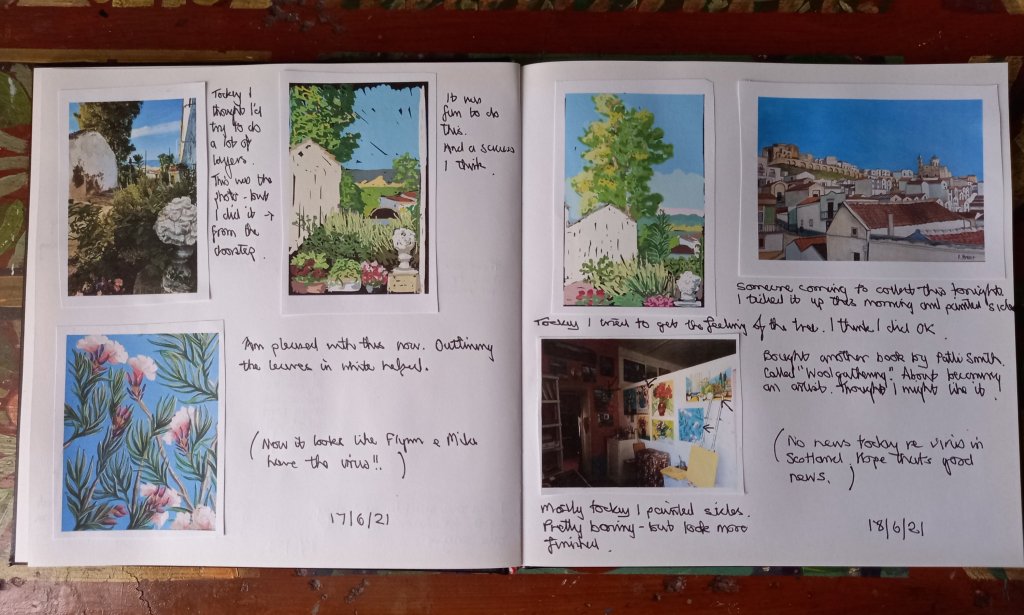 Today I
thought I'd
try to do
a lot of
layers.
This was the
photo - but
I did it →
from the
doorstep.
It was
fun to do
this.
And a success
I think.
Am pleased with this now. Outlining
the leaves in white helped.
(Now it looks like Flynn & Mike
have the virus!!)
17/6/21
Someone coming to collect this tonight
I titched it up this morning and painted sides
Today I tried to get the feeling of the tree. I think I did OK.
Bought another book by Patti Smith.
Called "Woolgathering". About becoming
an artist. Thought I might like it.
(No news today re virus in
Scotland, Hope that's good
news.)
Mostly today I painted sides.
Pretty boring - but look more
finished.
18/6/21